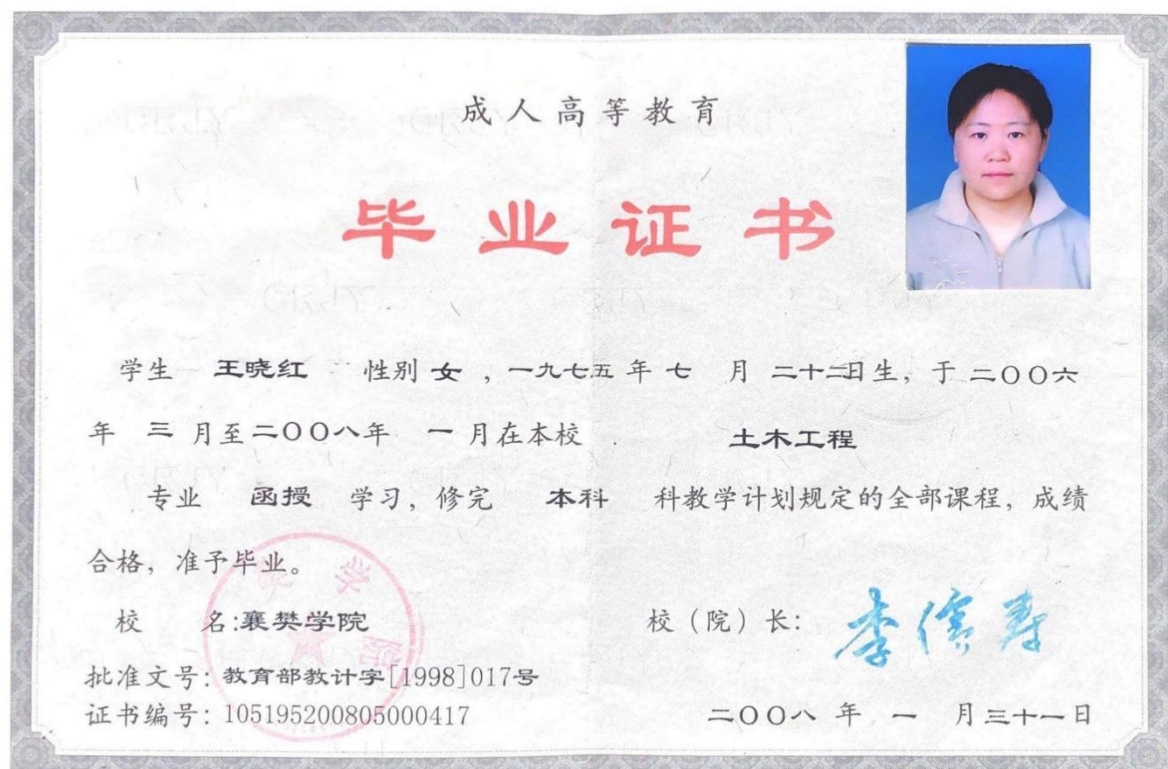 成人高等教育
毕业证书
学生 王晓红 性别 女 ，一九七五 年 七 月 二十二日生，于 二〇〇六
年 三 月至二〇〇八年 一 月在本校 土木工程
专业 函授 学习，修完 本科 科教学计划规定的全部课程，成绩
合格，准予毕业。
校 名:襄樊学院
校（院）长：李儒寿
批准文号：教育部教计字[1998]017号
证书编号：105195200805000417
二〇〇八 年 一 月三十一日